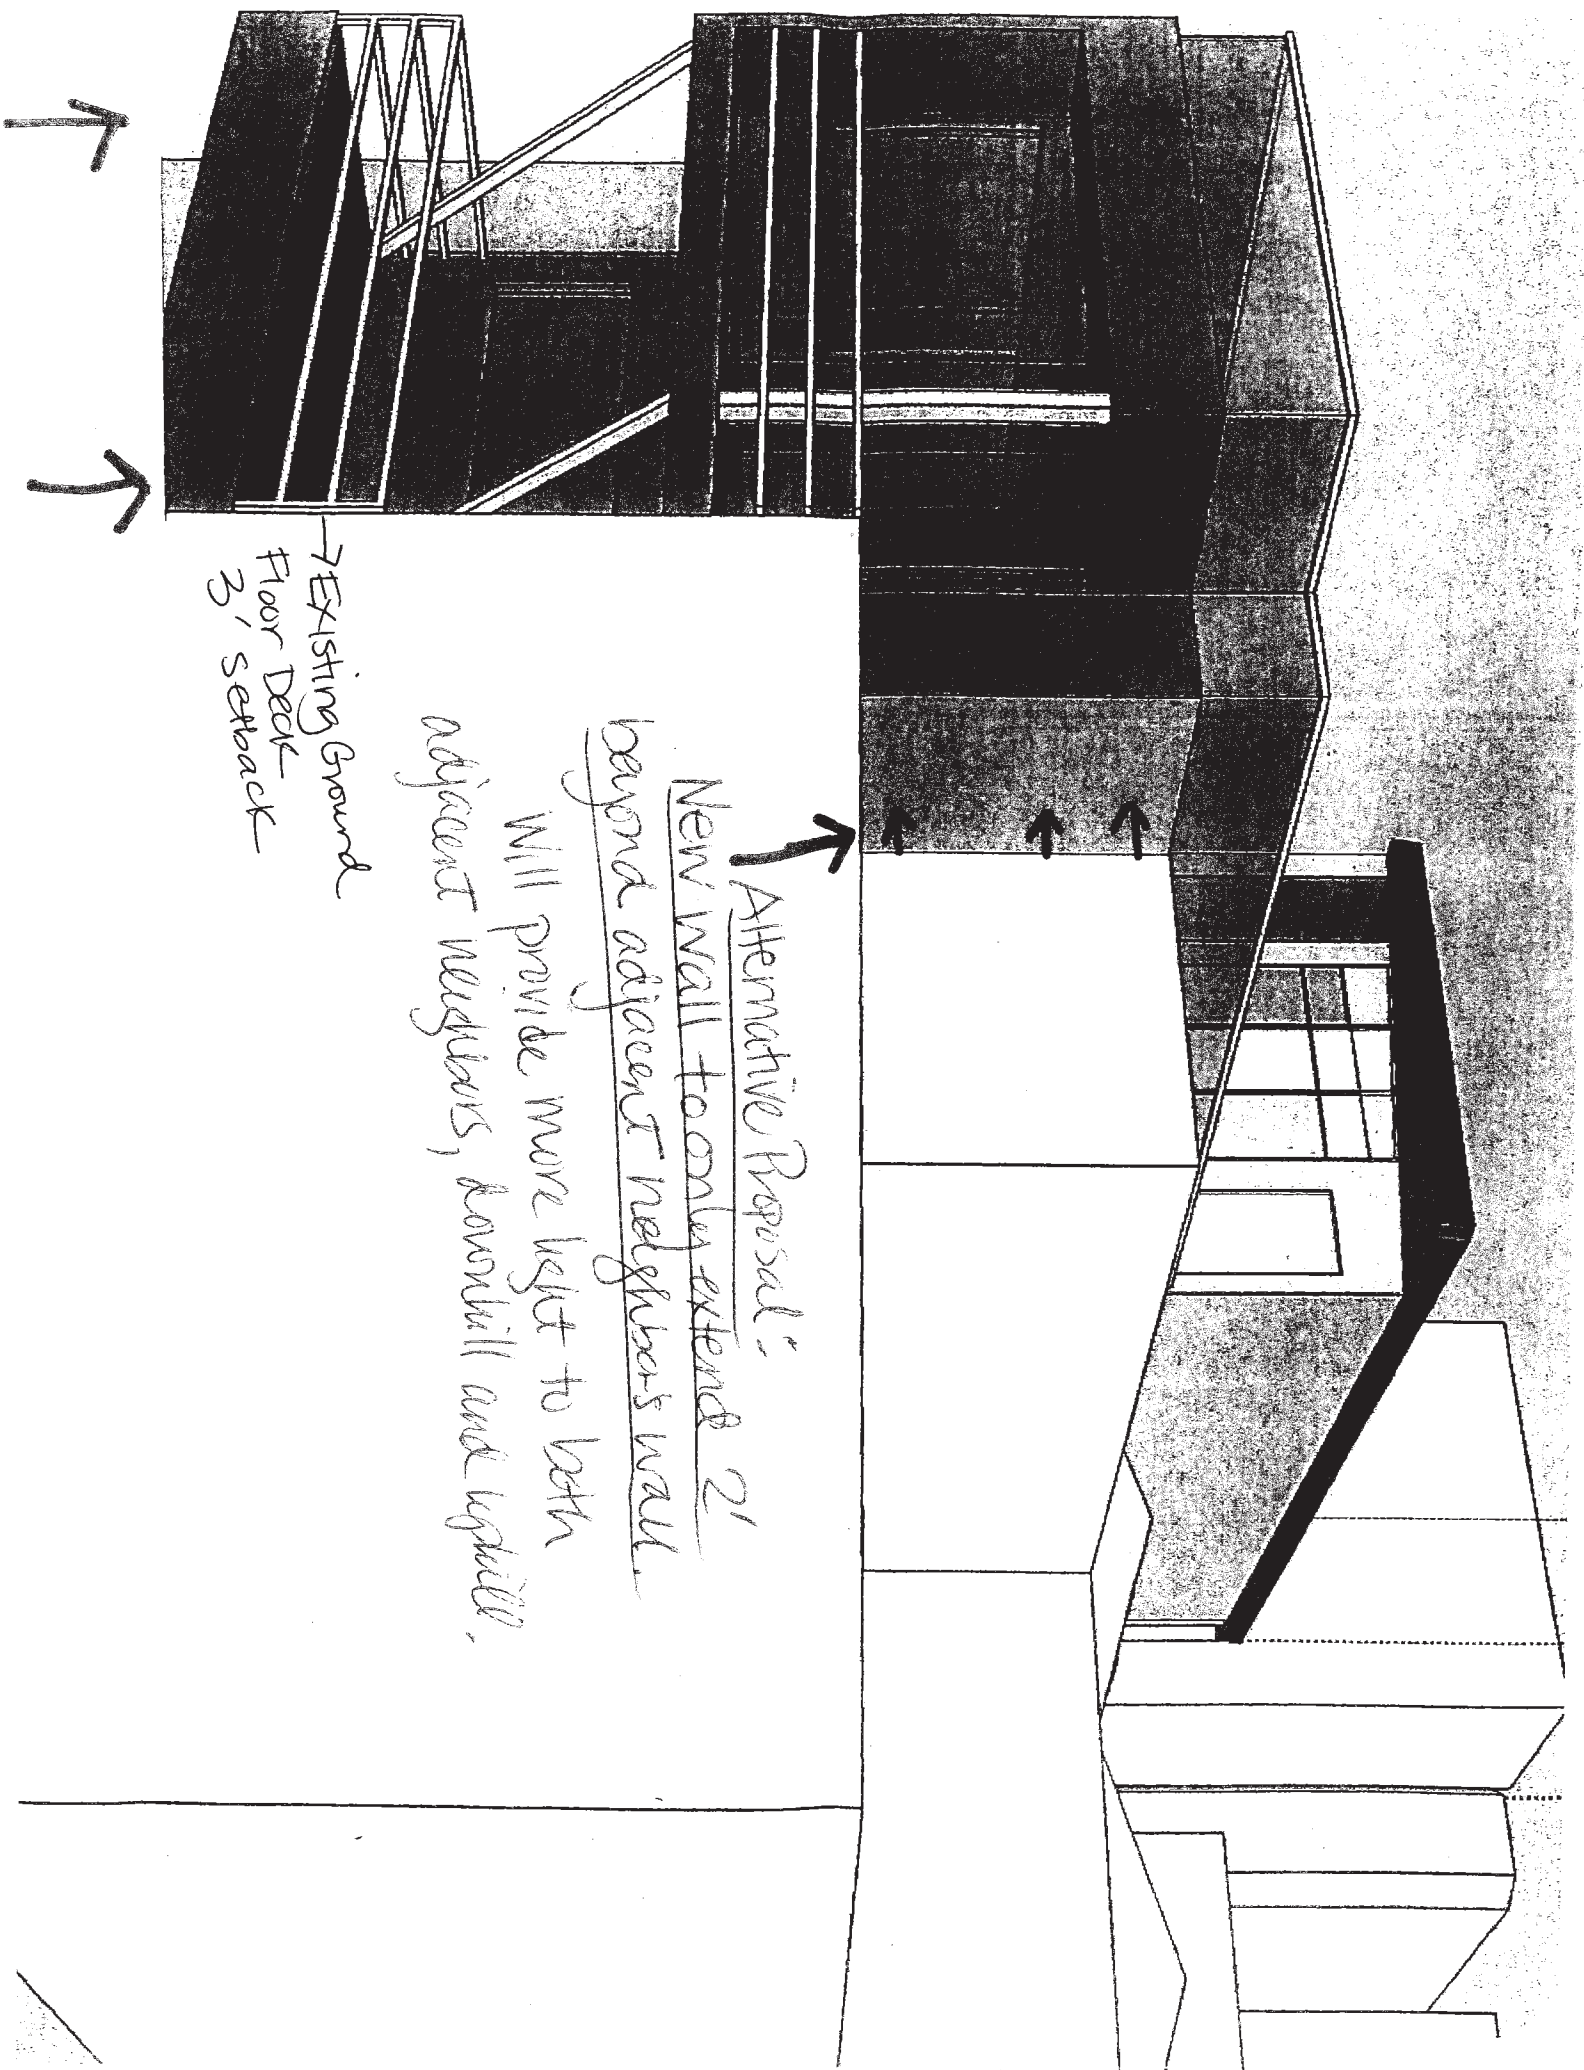 Alternative Proposal:
New wall to only extend 2'
beyond adjacent neighbor's wall.
Will provide more light to both
adjacent neighbors, downhill and uphill.
→Existing Ground
Floor Deck
3' setback